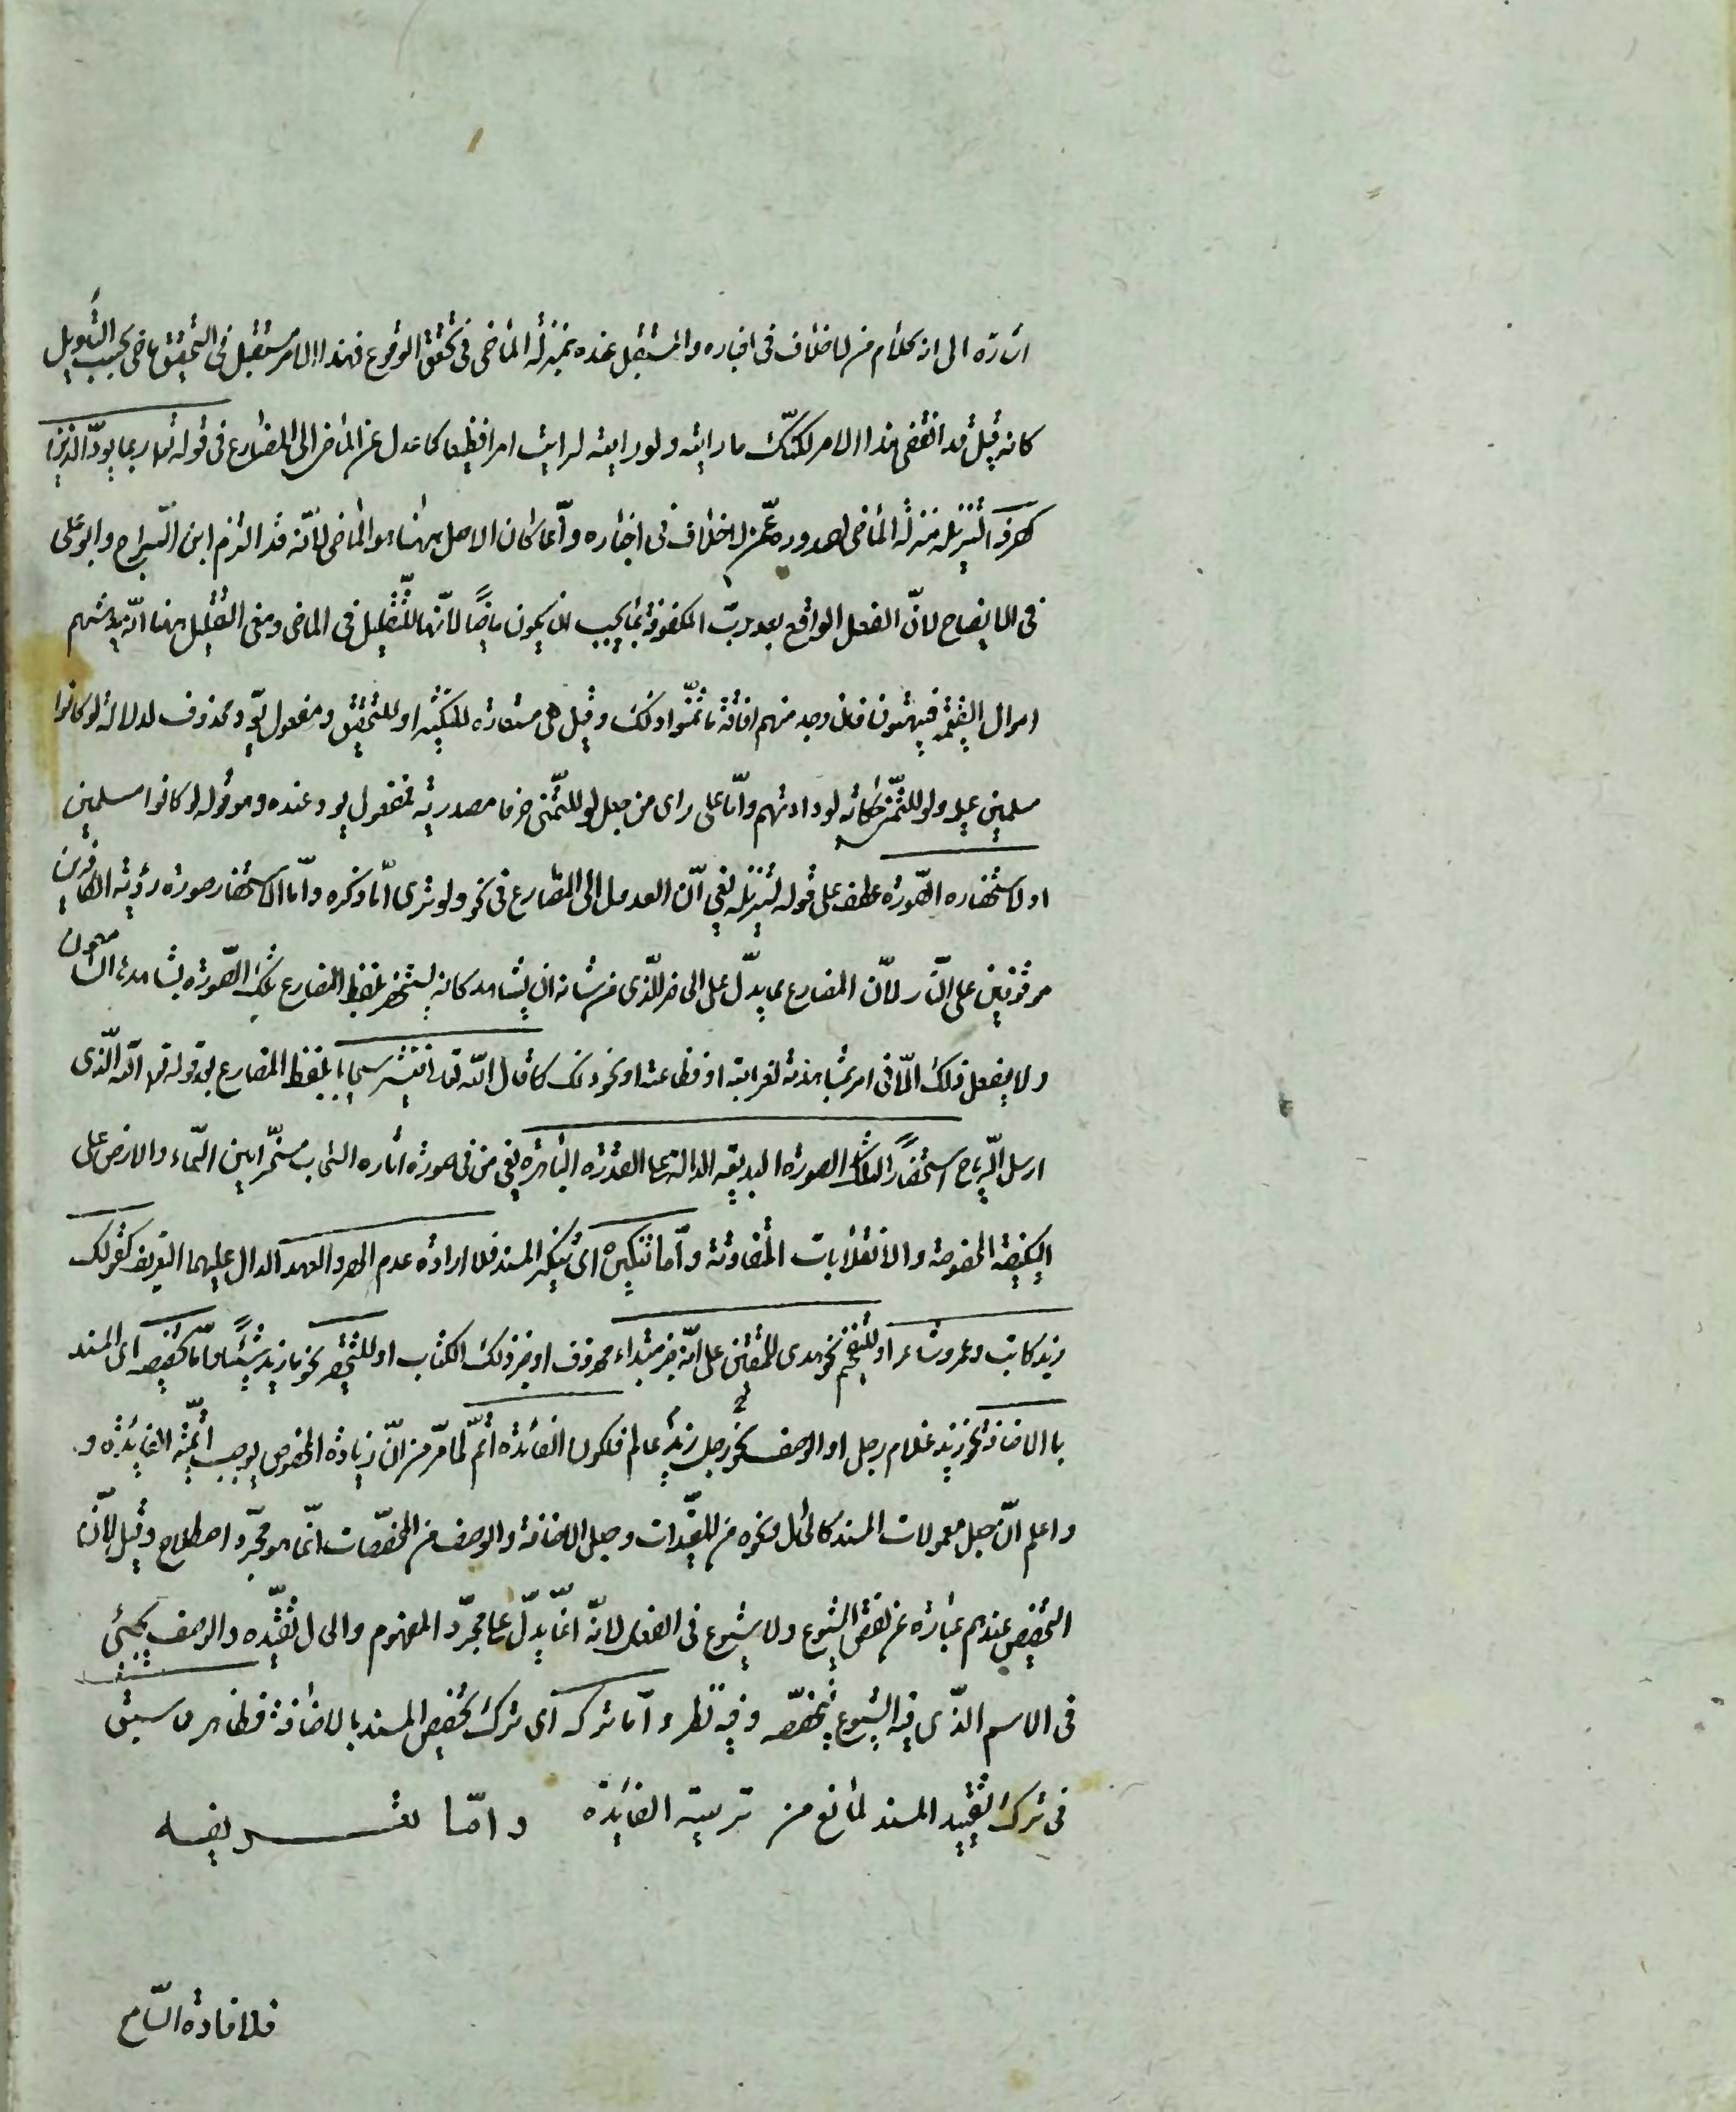 اشارة الى انه كلام من لا خلاف فى اخباره والمستقبل عنده بمنزلة الماضى فى تحقق الوقوع فهذا الامر مستقبل فى التحقيق ماض بحسب التأويل
كانه قيل قد انقضى هذا الامر لكنك ما رايته ولو رايته لرايت امرا فظيعا كما عدل عن الماضى الى المضارع فى قوله تعا ربما يودّ الذين
كفروا لتنزيله منزلة الماضى لصدوره عمّن لا خلاف فى اخباره وانّما كان الاصل ههنا هو الماضى لأنّه قد التزم ابن السّراج وابو على
فى الايضاح لانّ الفعل الواقع بعد ربّ المكفوفة بما يجب ان يكون ماضيًا لأنّها للتّقليل فى الماضى ومعنى التقليل ههنا انّه يدهشهم
اهوال القيٰمة فيبهتون فان وجد منهم افاقة ما تمنّوا ذلك وقيل هى مستعارة للتكثير او للتحقيق ومفعول يودّ محذوف لدلالة لو كانوا
مسلمين عليه ولو للتّمنّى حكاية لودادتهم وامّا على راى من جعل لو للتّمنى حرفا مصدرية فمفعول يود عنده هو قوله لو كانوا مسلمين
او لاستحضاره الصّورة عطف على قوله لتنزيله يعنى انّ العدول الى المضارع فى نحو ولو ترى امّا ذكره وامّا لاستحضار صورة رؤية الكافرين
موقوفين على النّار لانّ المضارع مما يدلّ على الحاضر الّذى من شانه ان يشاهد كانه يستحضر بلفظ المضارع تلك الصّورة ليشاهدها السامعون
ولا يفعل ذلك الّا فى امر يهتمّ بمشاهدته لغرابته او فظاعته او نحو ذلك كما قال اللّه تعا فتثير سحابا بلفظ المضارع بعد قوله تعا اللّه الّذى
ارسل الرّياح استحضارًا لتلك الصورة البديعة الدالة على القدرة الباهرة يعنى من فى صورة اثارة السّحاب مسخّرا بين السّماء والارض على
الكيفية المخصوصة والانقلابات المتفاوتة وامّا تنكيره اى تنكير المسند فلارادة عدم الحصر والعهد الدال عليهما التعريف كقولك
زيد كاتب وعمرو شاعر او للتّفخيم نحو هدى للمتّقين على انّه خبر مبتداء محذوف او خبر ذلك الكتاب او للتّحقير نحو ما زيد شيئًا وامّا تخصيصه اى المسند
بالاضافة نحو زيد غلام رجل او الوصف نحو زيد رجل عالم فلكون الفائدة اتمّ لما مرّ من انّ زيادة الخصوص يوجب اتمّية الفايدة و
واعلم انّ جعل معمولات المسند كالحال ونحوه من المقيّدات وجعل الاضافة والوصف من المخصّصات انّما هو مجرّد اصطلاح وقيل لأنّ
التخصيص عندهم عبارة عن نقص الشّيوع ولا شيوع فى الفعل لانّه انّما يدلّ على مجرّد المفهوم والحال تقيّده والوصف يجيئى
فى الاسم الذّى فيه الشّيوع فيخصّه وفيه نظر وامّا تركه اى ترك تخصيص المسند بالاضافة فظاهر مما سبق
فى ترك تقييد المسند لمانع من تربية الفايدة وامّا تعريفه
فلافادة السّامع